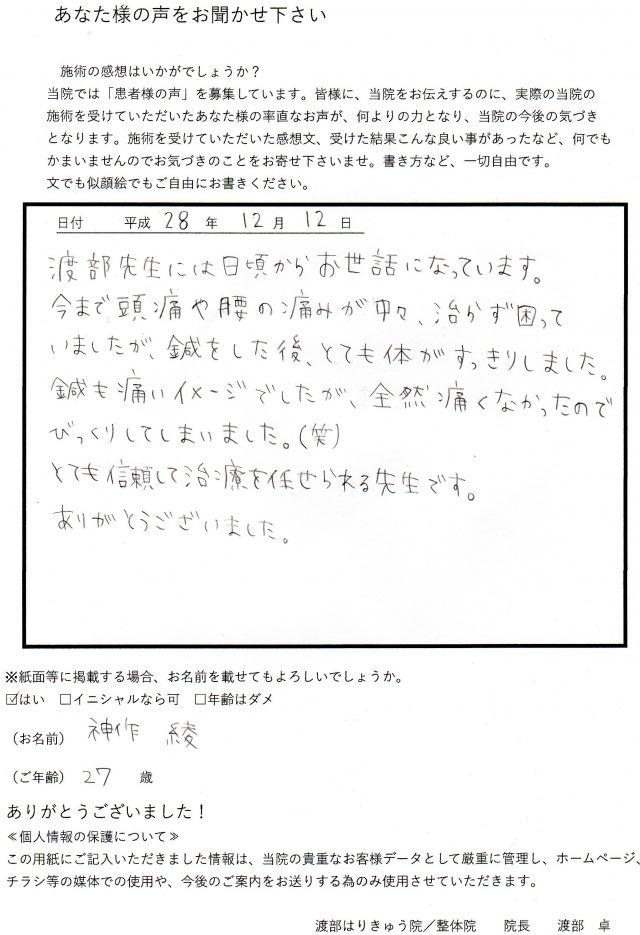 あなた様の声をお聞かせ下さい
施術の感想はいかがでしょうか？
当院では「患者様の声」を募集しています。皆様に、当院をお伝えするのに、実際の当院の
施術を受けていただいたあなた様の率直なお声が、何よりの力となり、当院の今後の気づき
となります。施術を受けていただいた感想文、受けた結果こんな良い事があったなど、何でも
かまいませんのでお気づきのことをお寄せ下さいませ。書き方など、一切自由です。
文でも似顔絵でもご自由にお書きください。
日付 平成 28 年 12 月 12 日
渡部先生には日頃からお世話になっています。
今まで頭痛や腰の痛みが中々、治らず困って
いましたが、鍼をした後、とても体がすっきりしました。
鍼も痛いイメージでしたが、全然痛くなかったので
びっくりしてしまいました。(笑)
とても信頼して治療を任せられる先生です。
ありがとうございました。
※紙面等に掲載する場合、お名前を載せてもよろしいでしょうか。
☑はい □イニシャルなら可 □年齢はダメ
（お名前） 神作 綾
（ご年齢） 27 歳
ありがとうございました！
≪個人情報の保護について≫
この用紙にご記入いただきました情報は、当院の貴重なお客様データとして厳重に管理し、ホームページ、
チラシ等の媒体での使用や、今後のご案内をお送りする為のみ使用させていただきます。
渡部はりきゅう院／整体院 院長 渡部 卓